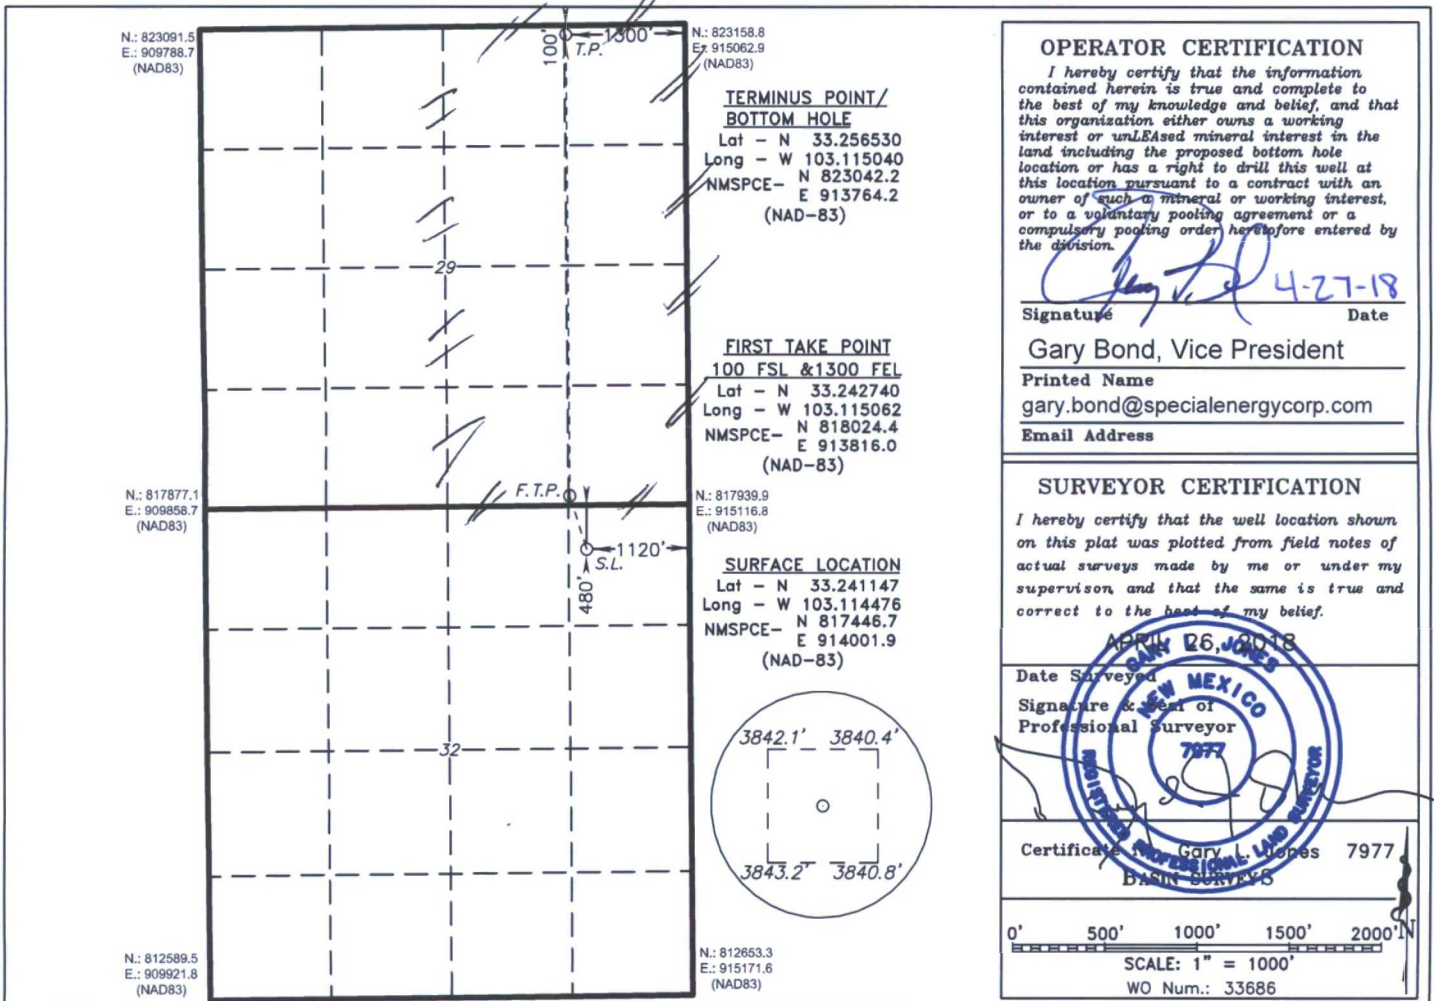 N.: 823091.5
E.: 909788.7
(NAD83)
100'
1300'
T.P.
N.: 823158.8
E: 915062.9
(NAD83)
TERMINUS POINT/
BOTTOM HOLE
Lat - N 33.256530
Long - W 103.115040
NMSPCE- N 823042.2
E 913764.2
(NAD-83)
29
FIRST TAKE POINT
100 FSL &1300 FEL
Lat - N 33.242740
Long - W 103.115062
NMSPCE- N 818024.4
E 913816.0
(NAD-83)
N.: 817877.1
E.: 909858.7
(NAD83)
F.T.P.
N.: 817939.9
E.: 915116.8
(NAD83)
1120'
S.L.
480'
SURFACE LOCATION
Lat - N 33.241147
Long - W 103.114476
NMSPCE- N 817446.7
E 914001.9
(NAD-83)
32
3842.1' 3840.4'
3843.2' 3840.8'
N.: 812589.5
E.: 909921.8
(NAD83)
N.: 812653.3
E.: 915171.6
(NAD83)
OPERATOR CERTIFICATION
I hereby certify that the information
contained herein is true and complete to
the best of my knowledge and belief, and that
this organization either owns a working
interest or unLEAsed mineral interest in the
land including the proposed bottom hole
location or has a right to drill this well at
this location pursuant to a contract with an
owner of such a mineral or working interest,
or to a voluntary pooling agreement or a
compulsory pooling order heretofore entered by
the division.
4-27-18
Signature Date
Gary Bond, Vice President
Printed Name
gary.bond@specialenergycorp.com
Email Address
SURVEYOR CERTIFICATION
I hereby certify that the well location shown
on this plat was plotted from field notes of
actual surveys made by me or under my
supervison, and that the same is true and
correct to the best of my belief.
APRIL 26, 2018
Date Surveyed
Signature & Seal of
Professional Surveyor
GARY L. JONES
NEW MEXICO
7977
REGISTERED PROFESSIONAL LAND SURVEYOR
Certificate Gary L. Jones 7977
BASIN SURVEYS
N
0' 500' 1000' 1500' 2000'
SCALE: 1" = 1000'
WO Num.: 33686